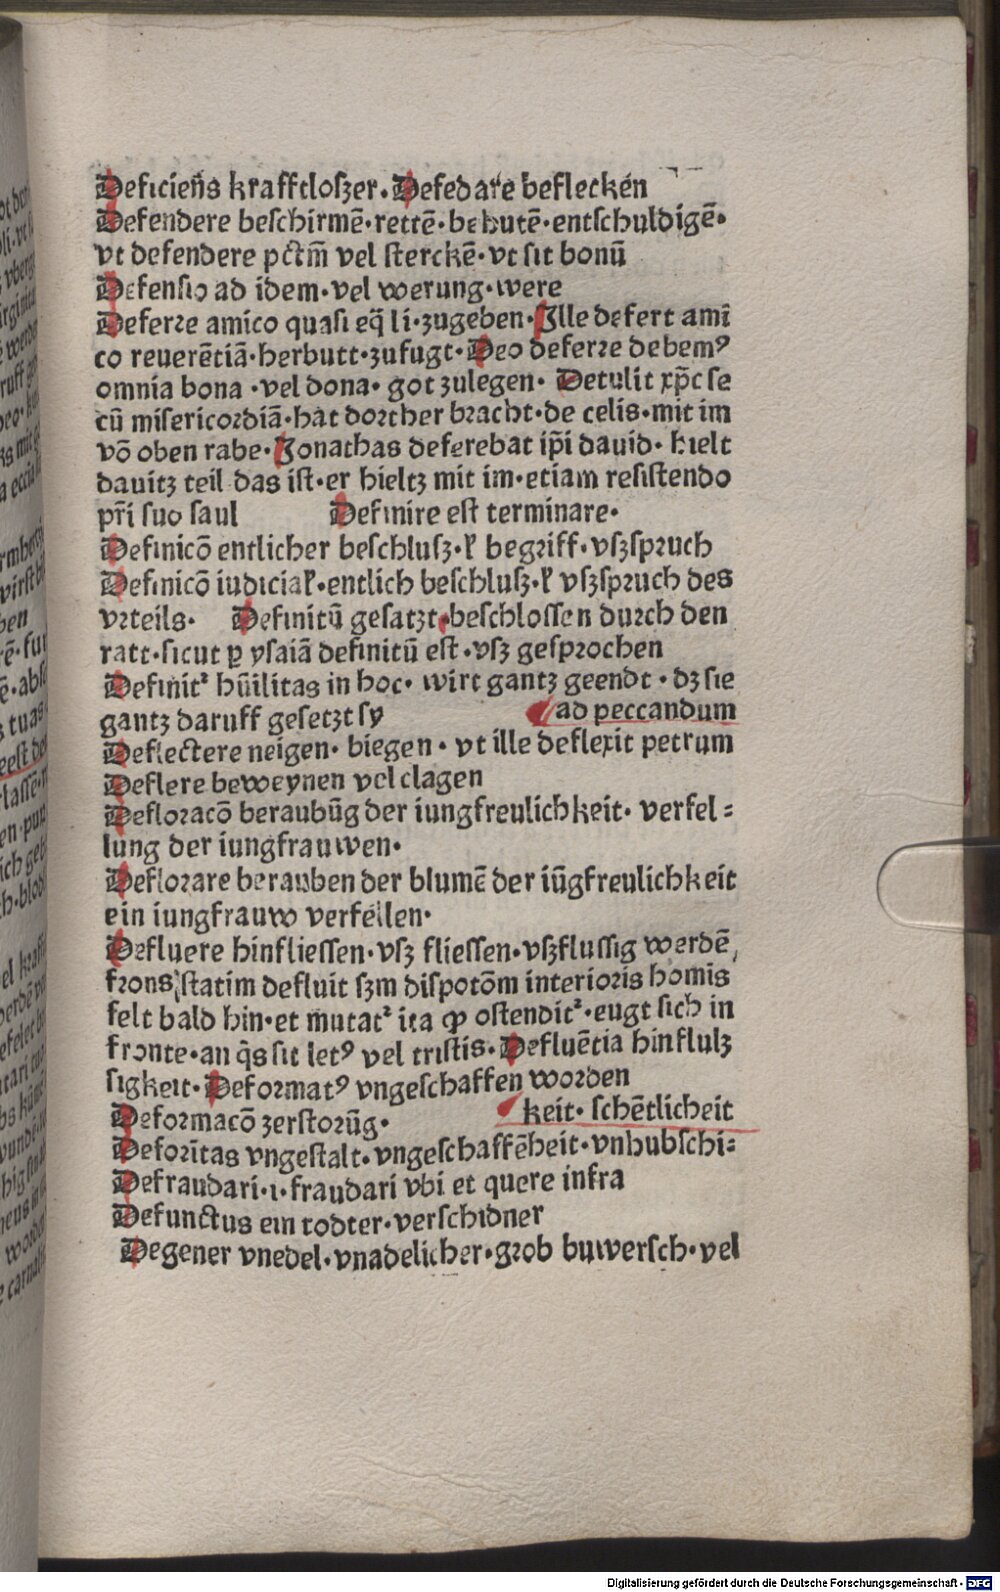 Deficiens̄ krafftloſzer · Defedare beflecken
Defendere beſchirmē · rettē · behutē · entſchuldigē ·
vt defendere pctm̄ vel ſterckē · vt ſit bonū
Defenſio ad idem · vel werung · were
Deferre amico quaſi eq̄ li · zugeben · Ille defert ami
co reuerētiā · herbutt · zufugt · Deo deferre debemꝰ
omnia bona · vel dona · got zulegen · Detulit xp̄c ſe
cū miſericordiā · hat dorther bracht · de celis · mit im
vō oben rabe · Jonathas deferebat ip̄i dauid · hielt
dauitz teil das iſt · er hieltz mit im · etiam reſiſtendo
pr̄i ſuo ſaul Definire eſt terminare ·
Definicō entlicher beſchluſz · ꝉ begriff · vſzſpruch
Definicō iudiciaꝉ · entlich beſchluſz · ꝉ vſzſpruch des
vrteils · Definitū geſatzt · beſchloſſen durch den
ratt · ſicut ꝑ yſaiā definitū eſt · vſz geſprochen
Definitᷣ hūilitas in hoc · wirt gantz geendt · dz ſie
gantz daruff geſetzt ſy ad peccandum
Deflectere neigen · biegen · vt ille deflexit petrum
Deflere beweynen vel clagen
Defloracō beraubūg der iungfreulichkeit · verfel⸗
lung der iungfrauwen ·
Deflorare berauben der blumē der iūgfreulichkeit
ein iungfrauw verfellen ·
Defluere hinflieſſen · vſz flieſſen · vſzfluſſig werdē,
frons ſtatim defluit ſzm diſpotōm interioris homis
felt bald hin · et mutatᷣ ita ꝙ oſtenditᷣ · eugt ſich in
fronte · an q̄s ſit letꝰ vel triſtis · Defluētia hinflulz
ſigkeit · Deformatꝰ vngeſchaffen worden
Deformacō zerſtorūg · keit · ſchētlicheit
Deforītas vngeſtalt · vngeſchaffēheit · vnhubſchi⸗
Defraudari · i · fraudari vbi et quere infra
Defunctus ein todter · verſchidner
Degener vnedel · vnadelicher · grob buwerſch · vel
Digitalisierung gefördert durch die Deutsche Forschungsgemeinschaft - DFG